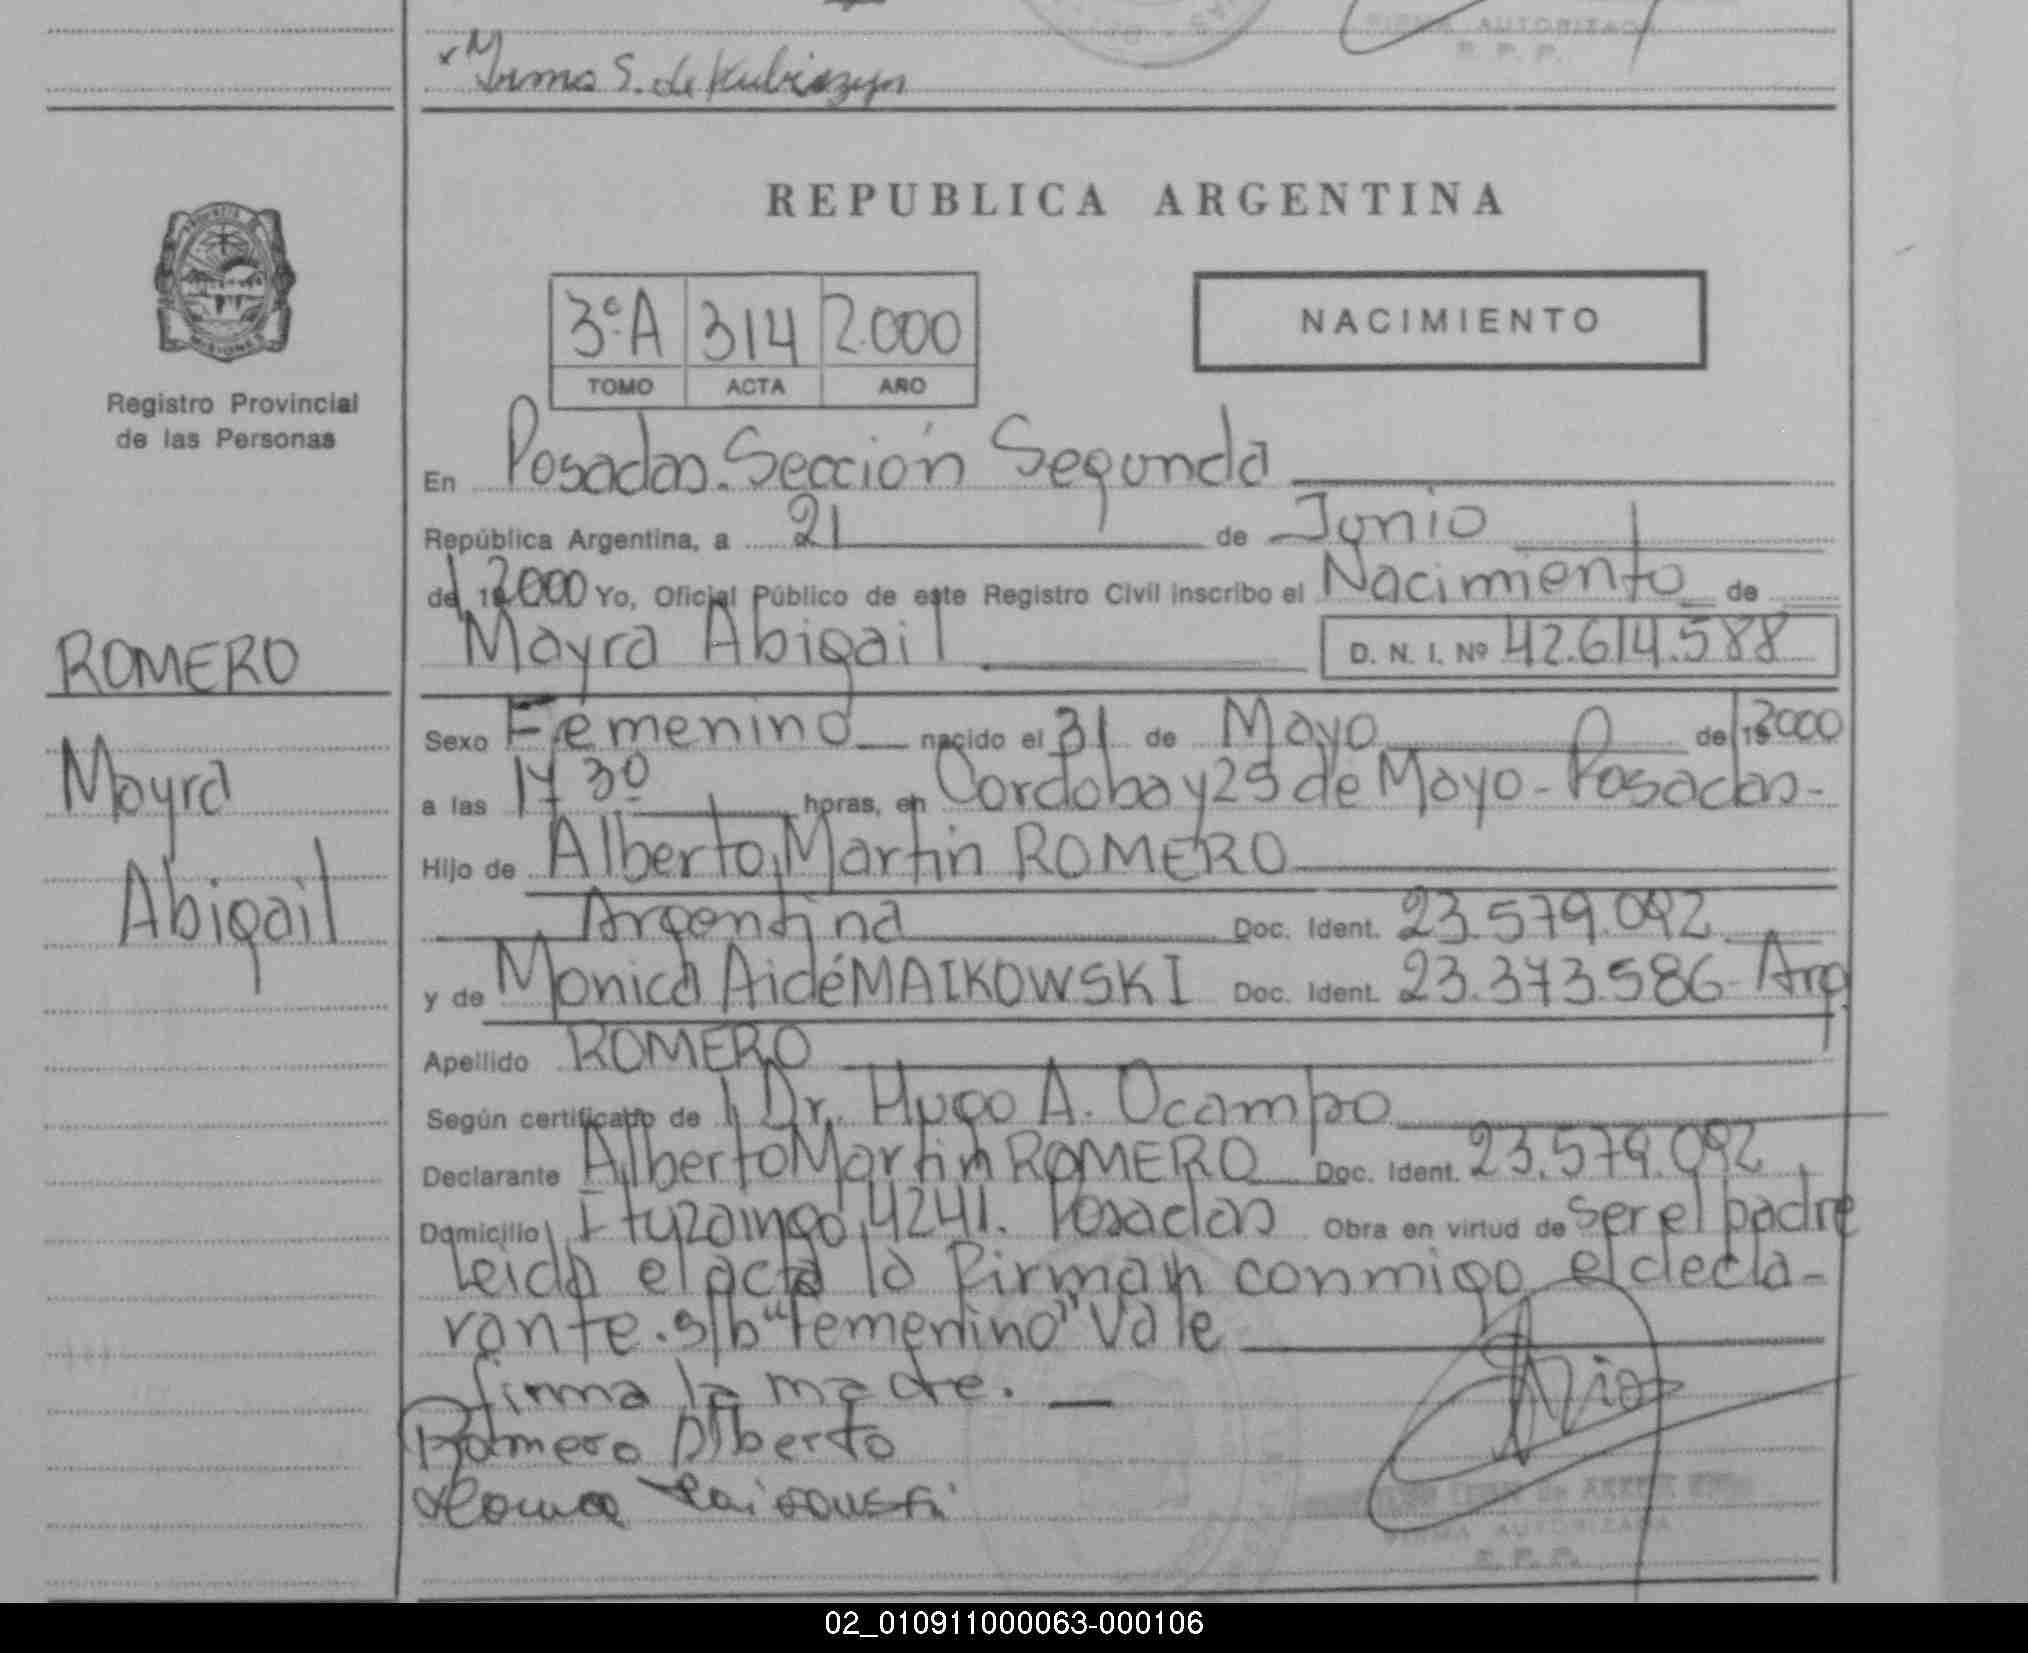 Irma S. de Kubiszyn
FIRMA AUTORIZADA
R. P. P.
REPUBLICA ARGENTINA
PROVINCIA DE MISIONES
Registro Provincial
de las Personas
3º A 314 2.000
TOMO ACTA AÑO
NACIMIENTO
En Posadas. Sección Segunda
República Argentina, a 21 de Junio
de 2000 Yo, Oficial Público de este Registro Civil inscribo el Nacimiento de
Mayra Abigail D. N. I. Nº 42.614.588
ROMERO
Mayra
Abigail
Sexo Femenino nacido el 31 de Mayo de 2000
a las 17 30 horas, en Cordoba y 25 de Mayo - Posadas-
Hijo de Alberto Martin ROMERO
Argentina Doc. Ident. 23.579.092
y de Monica Aidé MAIKOWSKI Doc. Ident. 23.373.586- Arg
Apellido ROMERO
Según certificado de Dr. Hugo A. Ocampo
Declarante Alberto Martin ROMERO Doc. Ident. 23.579.092
Domicilio Ituzaingo 4241. Posadas Obra en virtud de ser el padre
Leida el acta la firman conmigo el decla-
rante. s/b "femenino" Vale
firma la madre.
Romero Alberto
FIRMA AUTORIZADA
R. P. P.
02_010911000063-000106